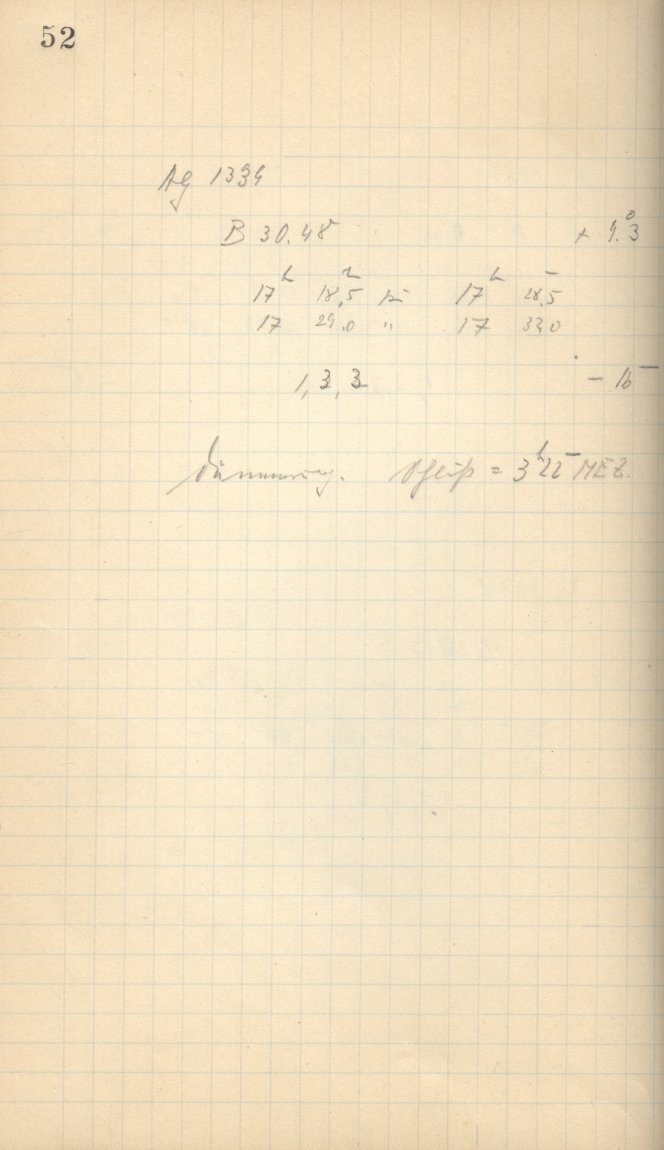 52
Ag 1334
B 30.48 + 9.°3
17h 18,5 bis 17h 28,5
17 29.0 " 17 33,0
1, 3, 3 – 16
Dämmerung. Schluß = 3h 22 MEZ.